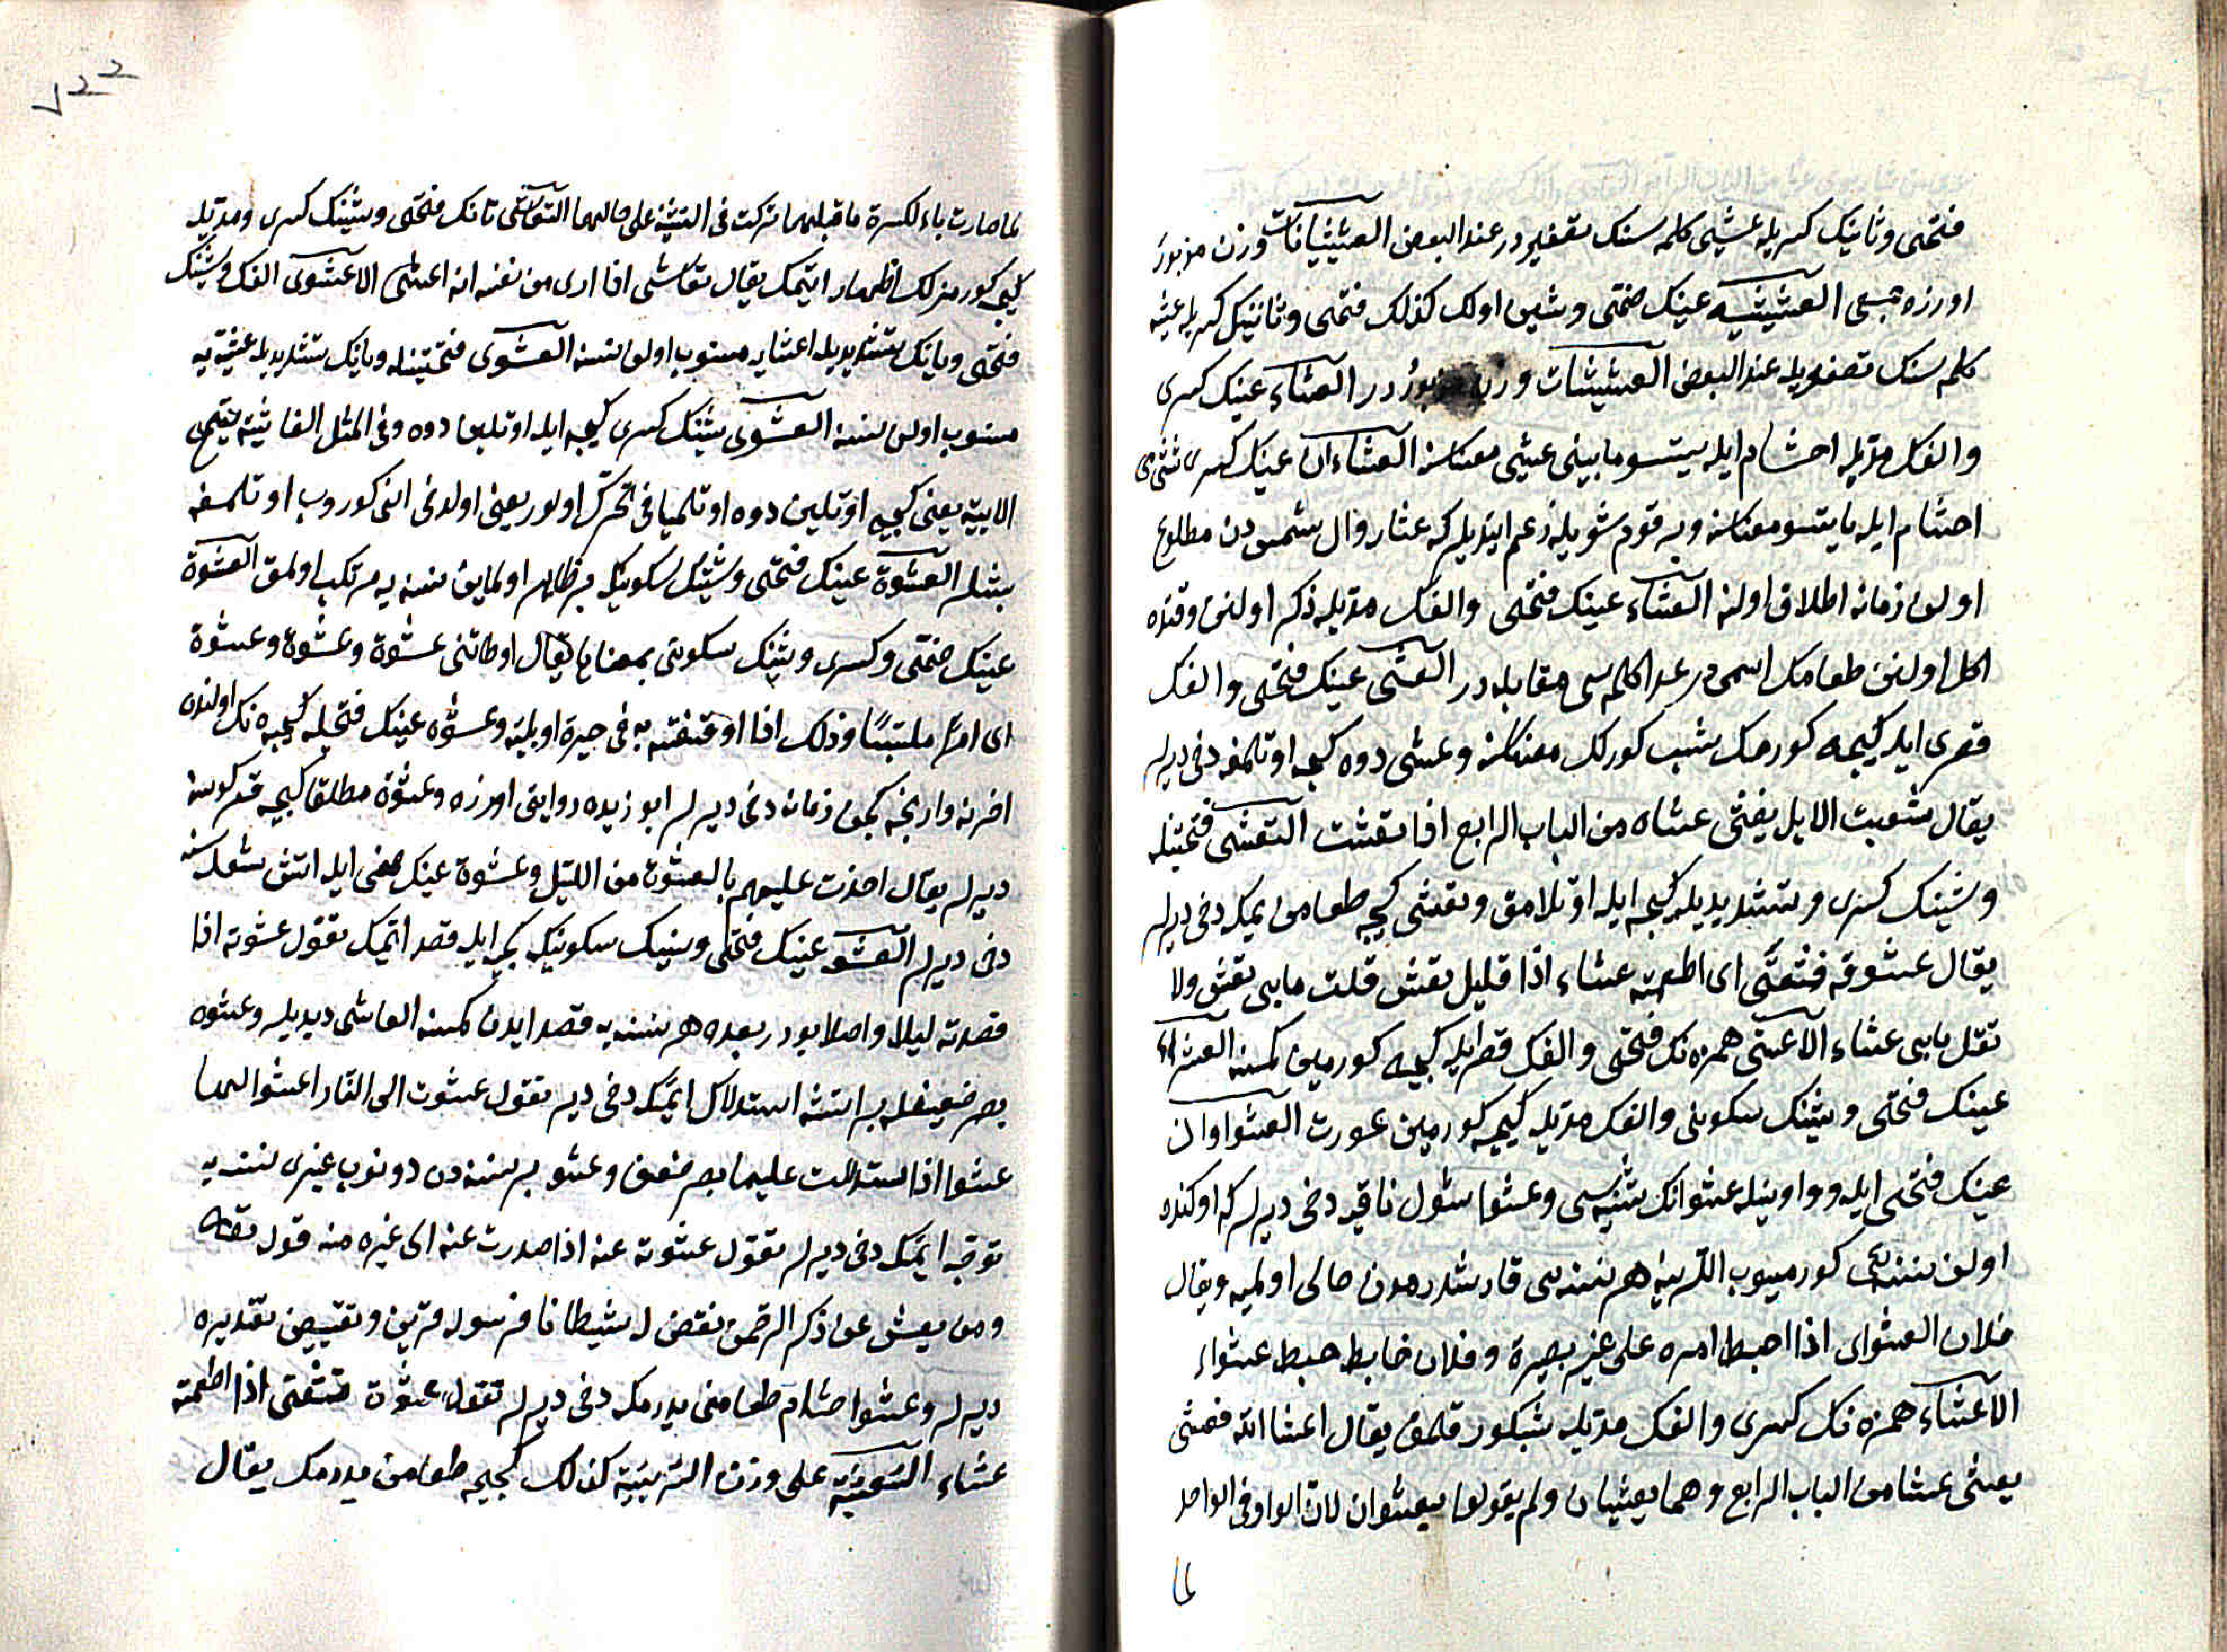 فتحى وثانينك كسريله عشيى كلمه سنك تصغيردر عند البعض العشيشيانات وزن مزبور
اوزره جمعى العشيشيه عينك ضمتى وشين اولك كذلك فتحى وثانينك كسريله عشيه
كلمه سنك تصغيريله عند البعض العشيشات وزن مزبور در العشاء عينك كسرى
والفك مديله احشام ايله يتسو مابينى عشيى معناسنه العشاءان عينك كسرى
احشام ايله ياتسو معناسنه وبر قوم شويله زعم ايتديلر كه عشا زوال شمس دن مطلوع
اولن زمانه اطلاق اولنه العشاء عينك فتحى والفك مديله ذكر اولنن وقتده
اكل اولنن طعامك اسمى در غدا كلمه سى مقابله در العشى عينك فتحى والفك
قصرى ايله كيجه كورمك شب كورلك معناسنه وعشى دوه كيجه اوتلمغه دخى ديرلر
يقال عشيت الابل يعشى عشاه من الباب الرابع اذا تعشت التعشى فتحتينله
وشينك كسرى وتشديديله كيجه ايله اوتلامق وتعشى كيجه طعامن يمكه دخى ديرلر
يقال عشوقه فتعشى اى اطعمته عشاء اذا قليل تعش قلت مابى تعش ولا
تقل مابى عشاء الاعشى همزه نك فتحى والفك قصرايله كيجه كورمين كمسنه العشواء
عينك فتحى وشينك سكونى والفك مديله كيجه كورمين عورت العشواوان
عينك فتحى ايله وواوينله عشوانك تثنيه سى وعشوا شول ناقيه دخى ديرلر كه اوكنده
اولن نسنه يى كورميوب اللرينه هر نسنه يى قارشدرمدن خالى اولميه ويقال
فلان العشواى اذا اخبط امره على غير بصيرة وفلان خابط خبط عشواء
الاعشاء همزه نك كسرى والفك مديله شبكور قلمق يقال اعشا الله فعشى
يعشى عشا من الباب الرابع وهما يعشيان ولم يقولوا يعشوان لان الواو فى الواحد
لما
لما صارت ياء لكسرة ما قبلها تركت فى التثنية على حالهما التعاشى تانك فتحى وشينك كسرى ومديله
كيجه كورمزلك اظهار ايتمك يقال تعاشى اذا ارى من نفسه انه اعشى الاعشوى الفك وشينك
فتحى ويانك تشديديله اعشايه منسوب اولن نسنه العشوى فتحتينله ويانك تشديديله عشيته يه
منسوب اولن نسنه العشوى شينك كسرى كيجه ايله اوتلين دوه وفى المثل العاشيه يتهيج
الابيه يعنى كيجه اوتلين دوه اوتلميانى تحرك اولور يعنى اولدخى انى كوروب اوتلمغه
بشلر العشوة عينك فتحى وشينك سكونيله بر ظاهر اولماين نسنه يه مرتكب اولمق العشوة
عينك ضمتى وكسرى وشينك سكونى بمعناها يقال اوطاتنى عشوة وعشوة وعشوة
اى امرًا ملتبسًا وذلك اذا اوقفته به فى حيرة اوبليته وعشوه عينك فتحيله كيجه نك اولنده
اخرنه وارنجه كچن زمانه دخى ديرلر ابو زيده روايتى اوزره وعشوة مطلقا كيجه قرمكوسنه
ديرلر يقال اخذت عليهم بالعشوة من الليل وعشوة عينك ضمى ايله اتش شعله سنه
دخى ديرلر العشو عينك فتحى وشينك سكونيله كيجه ايله قصد ايتمك تقول عشوته اذا
قصدته ليلا واصلا بودر بعده هر نسنه يه قصد ايدن كمسنه العاشى ديديلر وعشوه
بصر ضعيفله بر اتشه استدلال ايتمك دخى ديرلر تقول عشوت الى النار اعشوا اليها
عشوا اذا استدللت عليها بصر ضعيف وعشو بر نسنه دن دونوب غيرى نسنه يه
توجه ايتمك دخى ديرلر تقول عشوته عنه اذا صدرت عنه الى غيره منه قول تعالى
ومن يعش عن ذكر الرحمن نقيض له شيطانا فهو له قرين وتقييض تقديره
ديرلر وعشوا حشام طعامنى يدرمكه دخى ديرلر تقول عشوت فتعشى اذا اطعمته
عشاء التعشية على وزن التربية كذلك كيجه طعامن يدرمك يقال